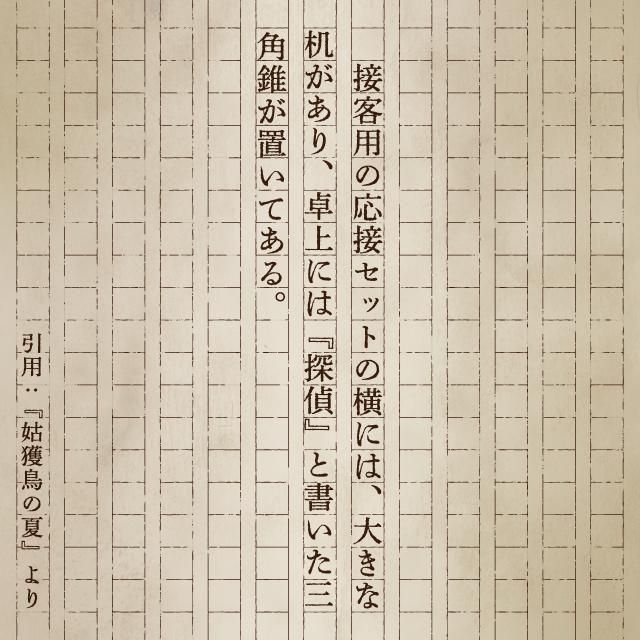 接客用の応接セットの横には、大きな
机があり、卓上には『探偵』と書いた三
角錐が置いてある。
引用：『姑獲鳥の夏』より